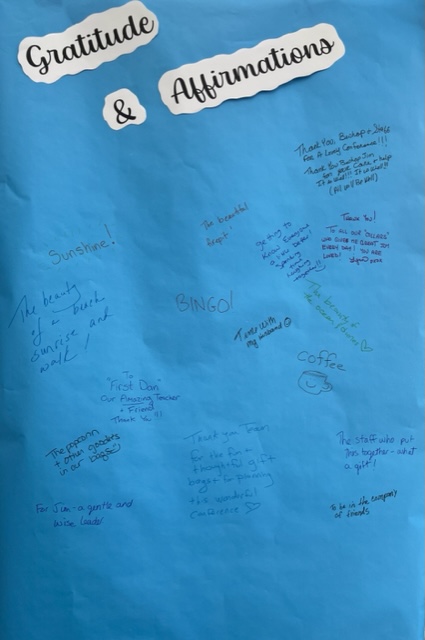 Gratitude
&
Affirmations
Thank You, Bishop + Staff
For A Lovely Conference!!!
Thank You Bishop Jim
for your Care + help
It is Well!! It is Well!!
(All Will Be Well)
The beautiful
Sunshine!
getting to
Know Everyone
a little better!
spending
time
laughing
together!!
Thank You!
To all our "Colleens"
EVERY DAY! YOU ARE
LOVED!
The beauty
of a beach
sunrise and
walk!
BINGO!
The beauty of
the ocean
Time with
my husband
coffee
To
"First Dan"
Our Amazing Teacher
+ Friend
Thank You!!!
The popcorn
+ other goodies
in our bags
Thank you Team
for the fun +
thoughtful gift
bags + for planning
this wonderful
conference
The staff who put
this together - what
a gift!
For Jim - a gentle and
wise leader
To be in the company
of friends